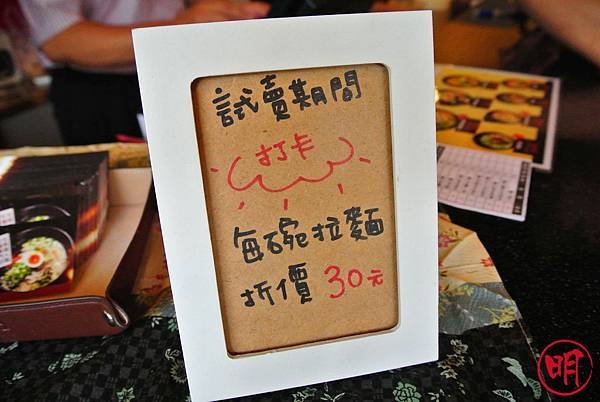 試賣期間
打卡
每碗拉麵
折價 30元
明